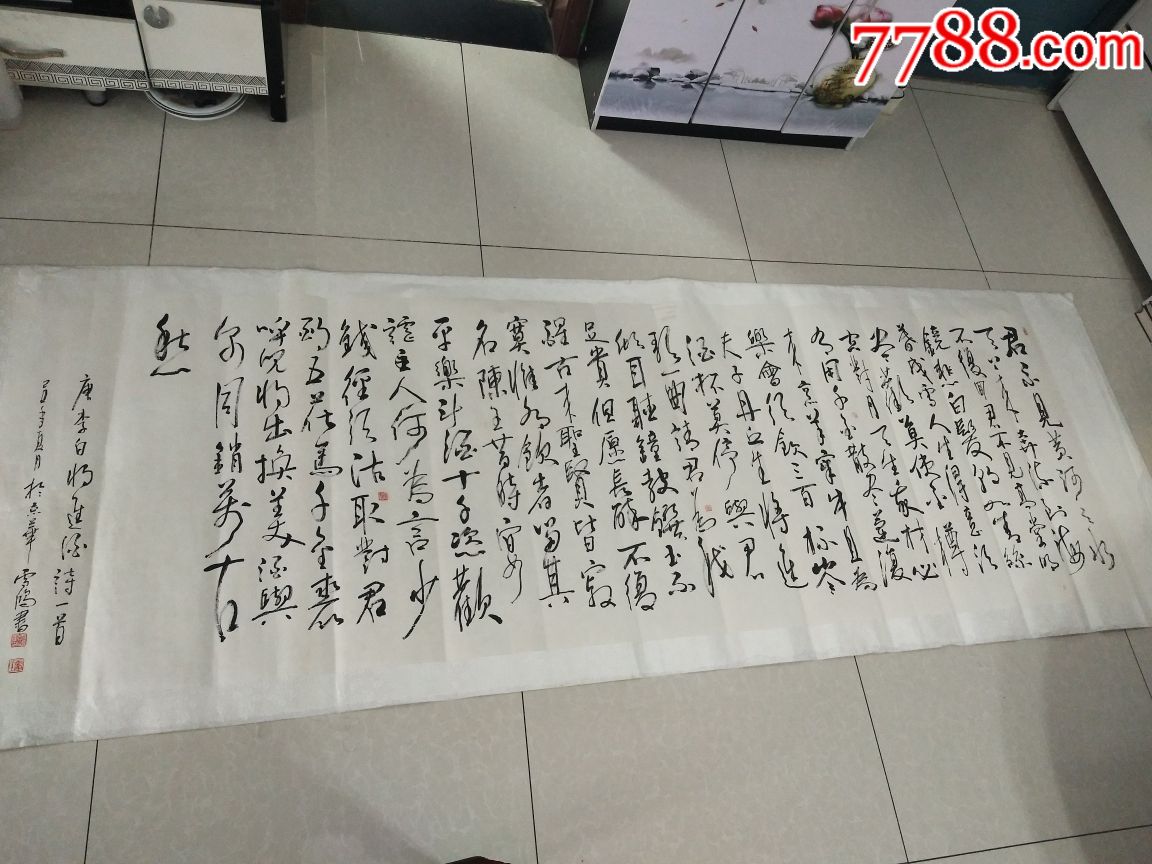 7788.com
君不见黄河之水
天上来奔流到海
不復回君不見高堂明
鏡悲白髮朝如青絲
暮成雪人生得意須
尽歡莫使金樽
空對月天生我材必
有用千金散尽還復
来烹羊宰牛且為
樂會須飲三百杯岑
夫子丹丘生將進
酒杯莫停與君
歌一曲請君為我
傾耳聽鐘鼓饌玉不
足貴但愿長醉不復
醒古来聖賢皆寂
寞惟有飲者留其
名陳王昔時宴
平樂斗酒十千恣歡
謔主人何為言少
錢徑須沽取對君
酌五花馬千金裘
呼兒將出換美酒與
尔同銷萬古
愁
唐李白將進酒詩一首
年夏月於京華
書